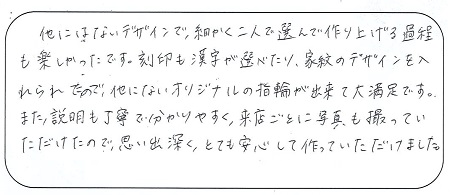 他にはないデザインで、細かく二人で選んで作り上げる過程
も楽しかったです。刻印も漢字が選べたり、家紋のデザインを入
れられたので、他にないオリジナルの指輪が出来て大満足です。
また、説明も丁寧で分かりやすく、来店ごとに写真も撮ってい
ただけたので、思い出深く、とても安心して作っていただけました